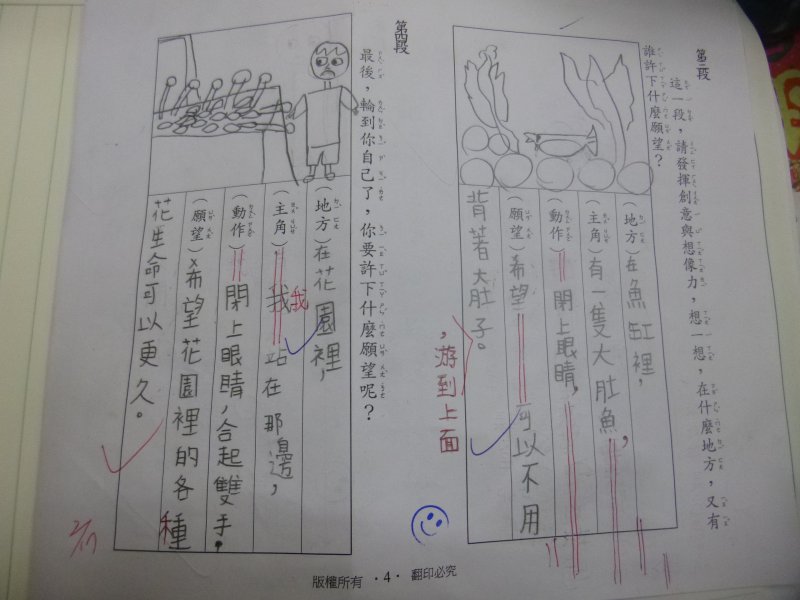 第三段
這一段，請發揮創意與想像力，想一想，在什麼地方，又有
誰許下什麼願望？
（地方）在魚缸裡，
（主角）有一隻大肚魚，
（動作）閉上眼睛，
（願望）希望可以不用
背著大肚子。
，游到上面
第四段
最後，輪到你自己了，你要許下什麼願望呢？
（地方）在花園裡，
（主角）我我站在那邊，
（動作）閉上眼睛，合起雙手，
（願望）希望花園裡的各種
花生命可以更久。
版權所有 ·4· 翻印必究